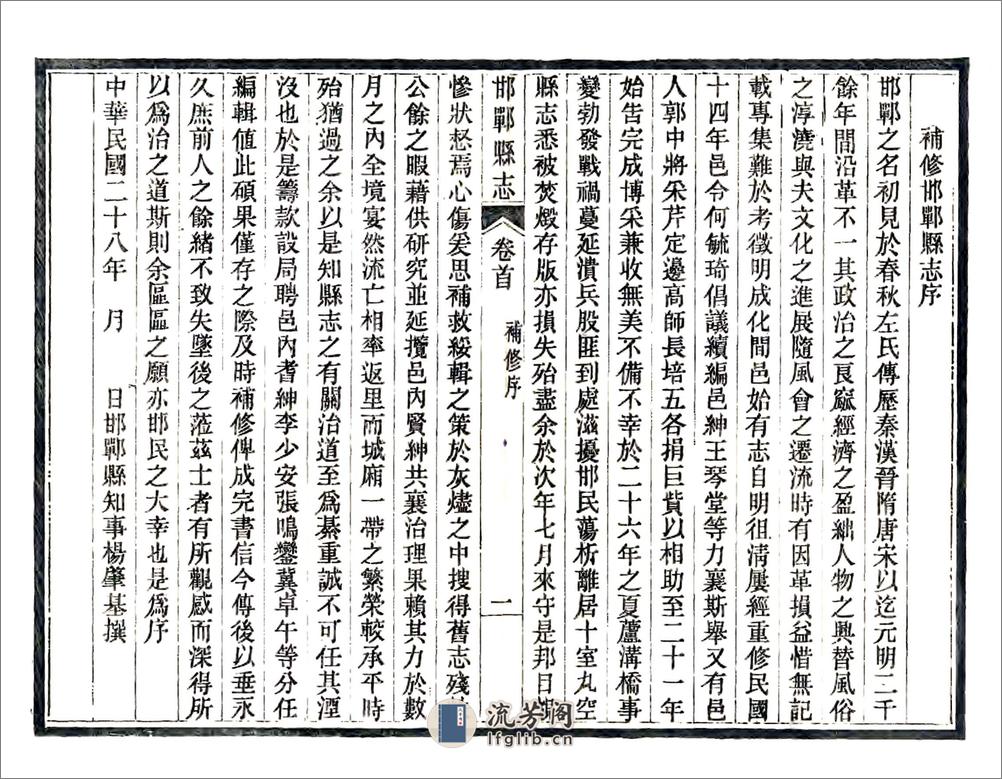 補修邯鄲縣志序
邯鄲之名初見於春秋左氏傳歷秦漢晉隋唐宋以迄元明二千
餘年間沿革不一其政治之良窳經濟之盈絀人物之興替風俗
之淳澆與夫文化之進展隨風會之遷流時有因革損益惜無記
載專集難於考徵明成化間邑始有志自明徂清屢經重修民國
十四年邑令何毓琦倡議續編邑紳王琴堂等力襄斯舉又有邑
人郭中將采芹定邊高師長培五各捐巨貲以相助至二十一年
始告完成博采兼收無美不備不幸於二十六年之夏蘆溝橋事
變勃發戰禍蔓延潰兵股匪到處滋擾邯民蕩析離居十室九空
縣志悉被焚燬存版亦損失殆盡余於次年七月來守是邦目
邯鄲縣志
卷首
補修序
二
慘狀惄焉心傷爰思補救綏輯之策於灰燼之中搜得舊志殘
公餘之暇藉供研究並延攬邑內賢紳共襄治理果賴其力於數
月之內全境宴然流亡相率返里而城廂一帶之繁榮較承平時
殆猶過之余以是知縣志之有關治道至爲綦重誠不可任其湮
沒也於是籌款設局聘邑內耆紳李少安張鳴鑾冀卓午等分任
編輯値此碩果僅存之際及時補修俾成完書信今傳後以垂永
久庶前人之餘緒不致失墜後之蒞茲士者有所觀感而深得所
以爲治之道斯則余區區之願亦邯民之大幸也是爲序
中華民國二十八年　月　　日邯鄲縣知事楊肇基撰
流芳閣
lfglib.cn